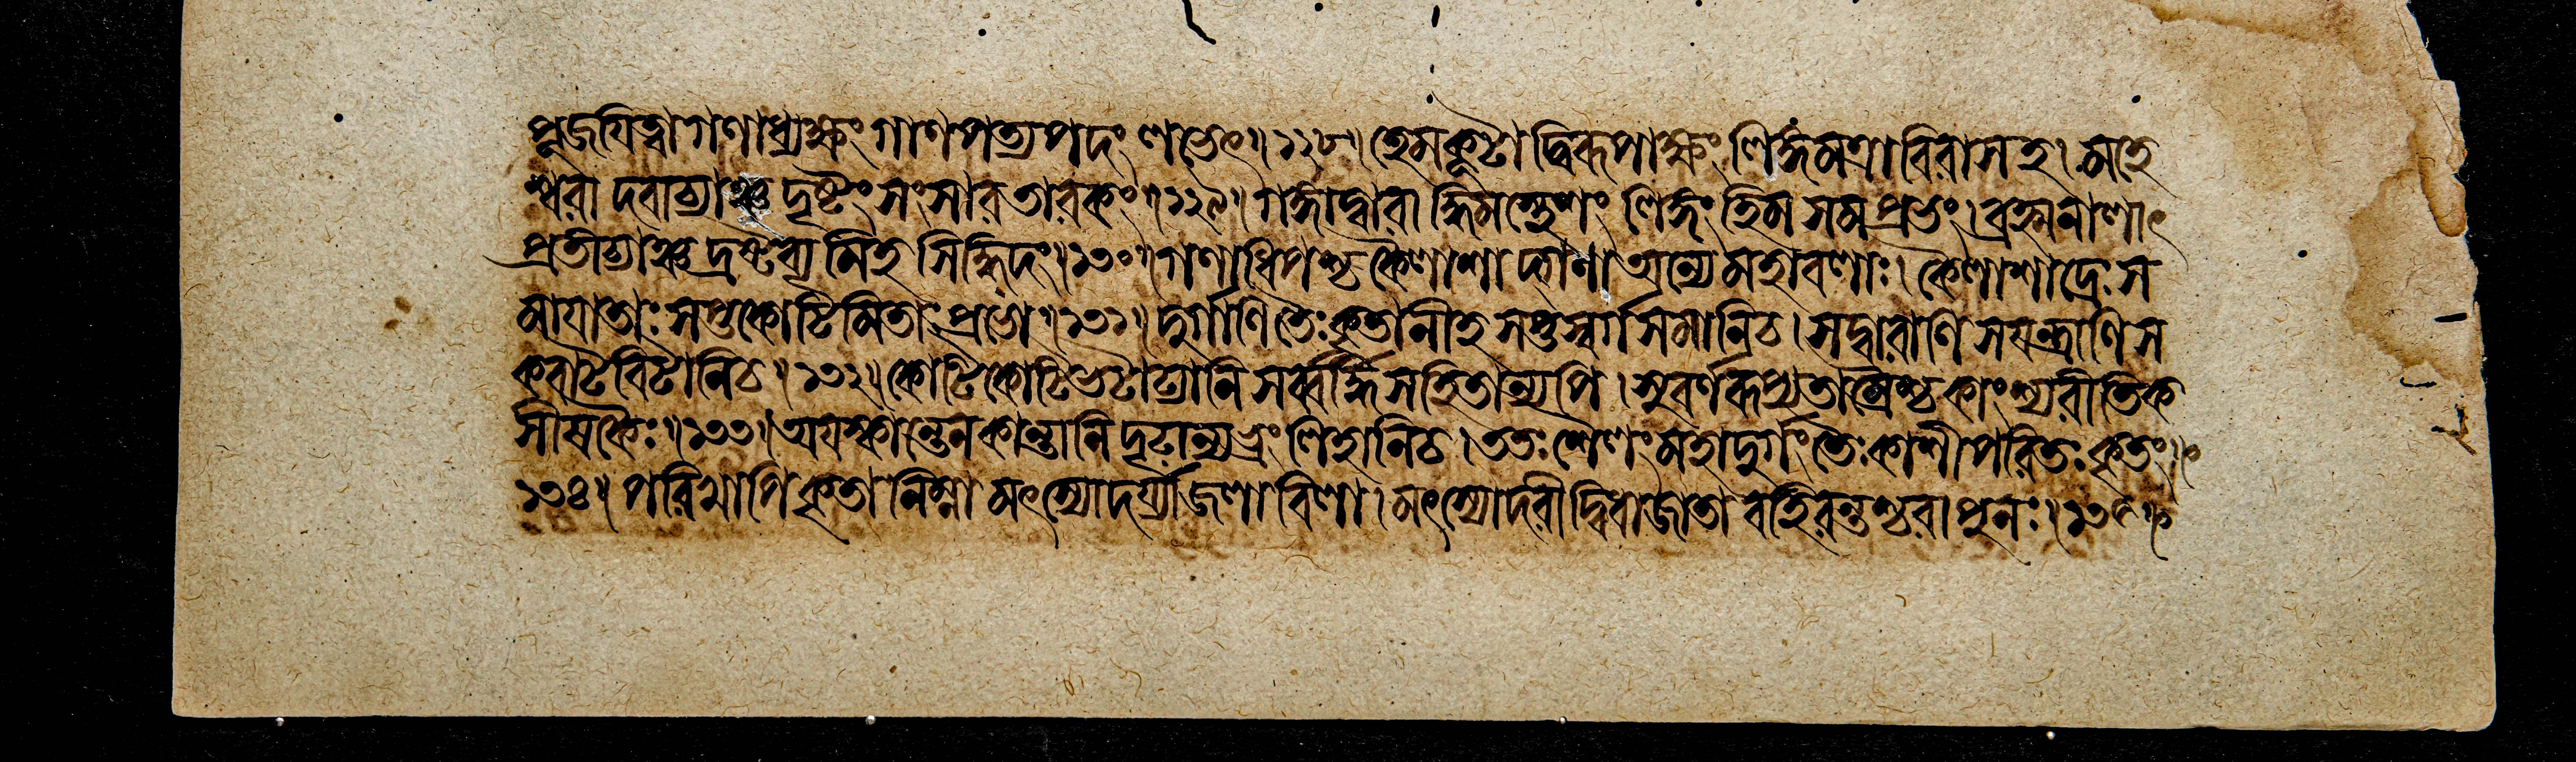 পূজযিত্বা গণাধ্যক্ষং গাণপত্যপদং লভেৎ॥১২৮॥ হেমকূটা দ্বিরূপাক্ষং লিঙ্গমত্রাবিরাসহ। মহে
শ্বরা দবাগ্যাঞ্চ দৃষ্টং সংসারতারকং॥১২৯॥ গঙ্গাদ্বারা হ্মিমস্থেশং লিঙ্গং হিমসমপ্রভং। ব্রহ্মনালাৎ
প্রতীগ্যাঞ্চ দ্রষ্টব্যমিহ সিদ্ধিদং॥১৩০॥ গণাধিপশ্চ কৈলাশো দ্গণা অন্যে মহাবলাঃ। কৈলাশাদ্রেঃ স
মাযাতাঃ সপ্তকোটিমিতাঃ প্রভো॥১৩১॥ দুর্গাণি তৈঃ কৃতানীহ সপ্তস্বর্গসমানি চ। সদ্বারাণি সযন্ত্রাণি স
কবাটবিটানি চ॥১৩২॥ কোটিকোটিভটাঢ্যানি সর্ব্বর্দ্ধিসহিতান্যপি। সুবর্ণরূপ্যতাম্রৈশ্চ কাংশ্যরীতিক
সীষকৈঃ॥১৩৩॥ অযস্কান্তেন কান্তানি দৃঢান্যভ্রংলিহানি চ। ততঃ শৈলং মহাদুর্গং তৈঃ কাশীপরিতঃ কৃতং॥
১৩৪॥ পরিখাপি কৃতা নিম্না মৎস্যোদর্য্যা জলাবিলা। মৎস্যোদরী দ্বিধা জাতা বহিরন্তশ্চরা পুনঃ॥১৩৫॥